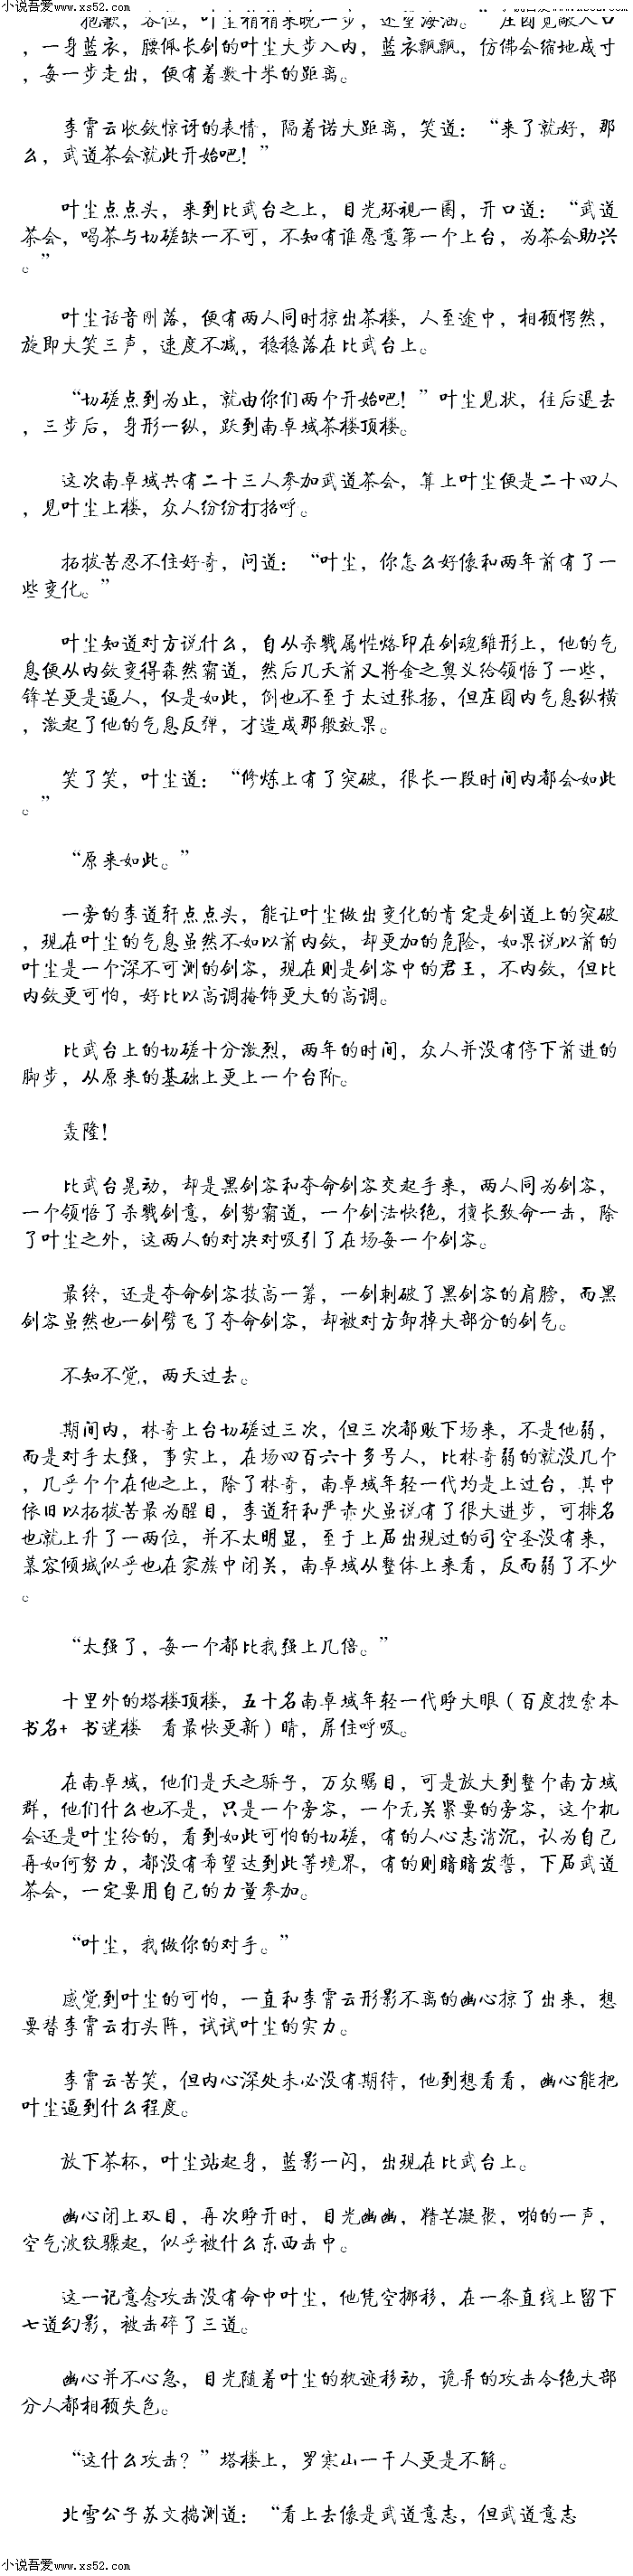 小说吾爱www.xs52.com
小说吾爱www.xs52.com
“抱歉，各位，叶尘稍稍来晚一步，还望海涵。”庄园宽敞入口
，一身蓝衣，腰佩长剑的叶尘大步入内，蓝衣飘飘，仿佛会缩地成寸
，每一步走出，便有着数十米的距离。
李霄云收敛惊讶的表情，隔着诺大距离，笑道：“来了就好，那
么，武道茶会就此开始吧！”
叶尘点点头，来到比武台之上，目光环视一圈，开口道：“武道
茶会，喝茶与切磋缺一不可，不知有谁愿意第一个上台，为茶会助兴
。”
叶尘话音刚落，便有两人同时掠出茶楼，人至途中，相顾愕然，
旋即大笑三声，速度不减，稳稳落在比武台上。
“切磋点到为止，就由你们两个开始吧！”叶尘见状，往后退去
，三步后，身形一纵，跃到南卓域茶楼顶楼。
这次南卓域共有二十三人参加武道茶会，算上叶尘便是二十四人
，见叶尘上楼，众人纷纷打招呼。
拓拔苦忍不住好奇，问道：“叶尘，你怎么好像和两年前有了一
些变化。”
叶尘知道对方说什么，自从杀戮属性烙印在剑魂雏形上，他的气
息便从内敛变得森然霸道，然后几天前又将金之奥义给领悟了一些，
锋芒更是逼人，仅是如此，倒也不至于太过张扬，但庄园内气息纵横
，激起了他的气息反弹，才造成那般效果。
笑了笑，叶尘道：“修炼上有了突破，很长一段时间内都会如此
。”
“原来如此。”
一旁的李道轩点点头，能让叶尘做出变化的肯定是剑道上的突破
，现在叶尘的气息虽然不如以前内敛，却更加的危险，如果说以前的
叶尘是一个深不可测的剑客，现在则是剑客中的君王，不内敛，但比
内敛更可怕，好比以高调掩饰更大的高调。
比武台上的切磋十分激烈，两年的时间，众人并没有停下前进的
脚步，从原来的基础上更上一个台阶。
轰隆！
比武台晃动，却是黑剑客和夺命剑客交起手来，两人同为剑客，
一个领悟了杀戮剑意，剑势霸道，一个剑法快绝，擅长致命一击，除
了叶尘之外，这两人的对决对吸引了在场每一个剑客。
最终，还是夺命剑客技高一筹，一剑刺破了黑剑客的肩膀，而黑
剑客虽然也一剑劈飞了夺命剑客，却被对方卸掉大部分的剑气。
不知不觉，两天过去。
期间内，林奇上台切磋过三次，但三次都败下场来，不是他弱，
而是对手太强，事实上，在场四百六十多号人，比林奇弱的就没几个
，几乎个个在他之上，除了林奇，南卓域年轻一代均是上过台，其中
依旧以拓拔苦最为醒目，李道轩和严赤火虽说有了很大进步，可排名
也就上升了一两位，并不太明显，至于上届出现过的司空圣没有来，
慕容倾城似乎也在家族中闭关，南卓域从整体上来看，反而弱了不少
。
“太强了，每一个都比我强上几倍。”
十里外的塔楼顶楼，五十名南卓域年轻一代睁大眼（百度搜索本
书名+ 书迷楼 看最快更新）睛，屏住呼吸。
在南卓域，他们是天之骄子，万众瞩目，可是放大到整个南方域
群，他们什么也不是，只是一个旁客，一个无关紧要的旁客，这个机
会还是叶尘给的，看到如此可怕的切磋，有的人心志消沉，认为自己
再如何努力，都没有希望达到此等境界，有的则暗暗发誓，下届武道
茶会，一定要用自己的力量参加。
“叶尘，我做你的对手。”
感觉到叶尘的可怕，一直和李霄云形影不离的幽心掠了出来，想
要替李霄云打头阵，试试叶尘的实力。
李霄云苦笑，但内心深处未必没有期待，他到想看看，幽心能把
叶尘逼到什么程度。
放下茶杯，叶尘站起身，蓝影一闪，出现在比武台上。
幽心闭上双目，再次睁开时，目光幽幽，精芒凝聚，啪的一声，
空气波纹骤起，似乎被什么东西击中。
这一记意念攻击没有命中叶尘，他凭空挪移，在一条直线上留下
七道幻影，被击碎了三道。
幽心并不心急，目光随着叶尘的轨迹移动，诡异的攻击令绝大部
分人都相顾失色。
“这什么攻击？”塔楼上，罗寒山一干人更是不解。
北雪公子苏文揣测道：“看上去像是武道意志，但武道意志
小说吾爱www.xs52.com